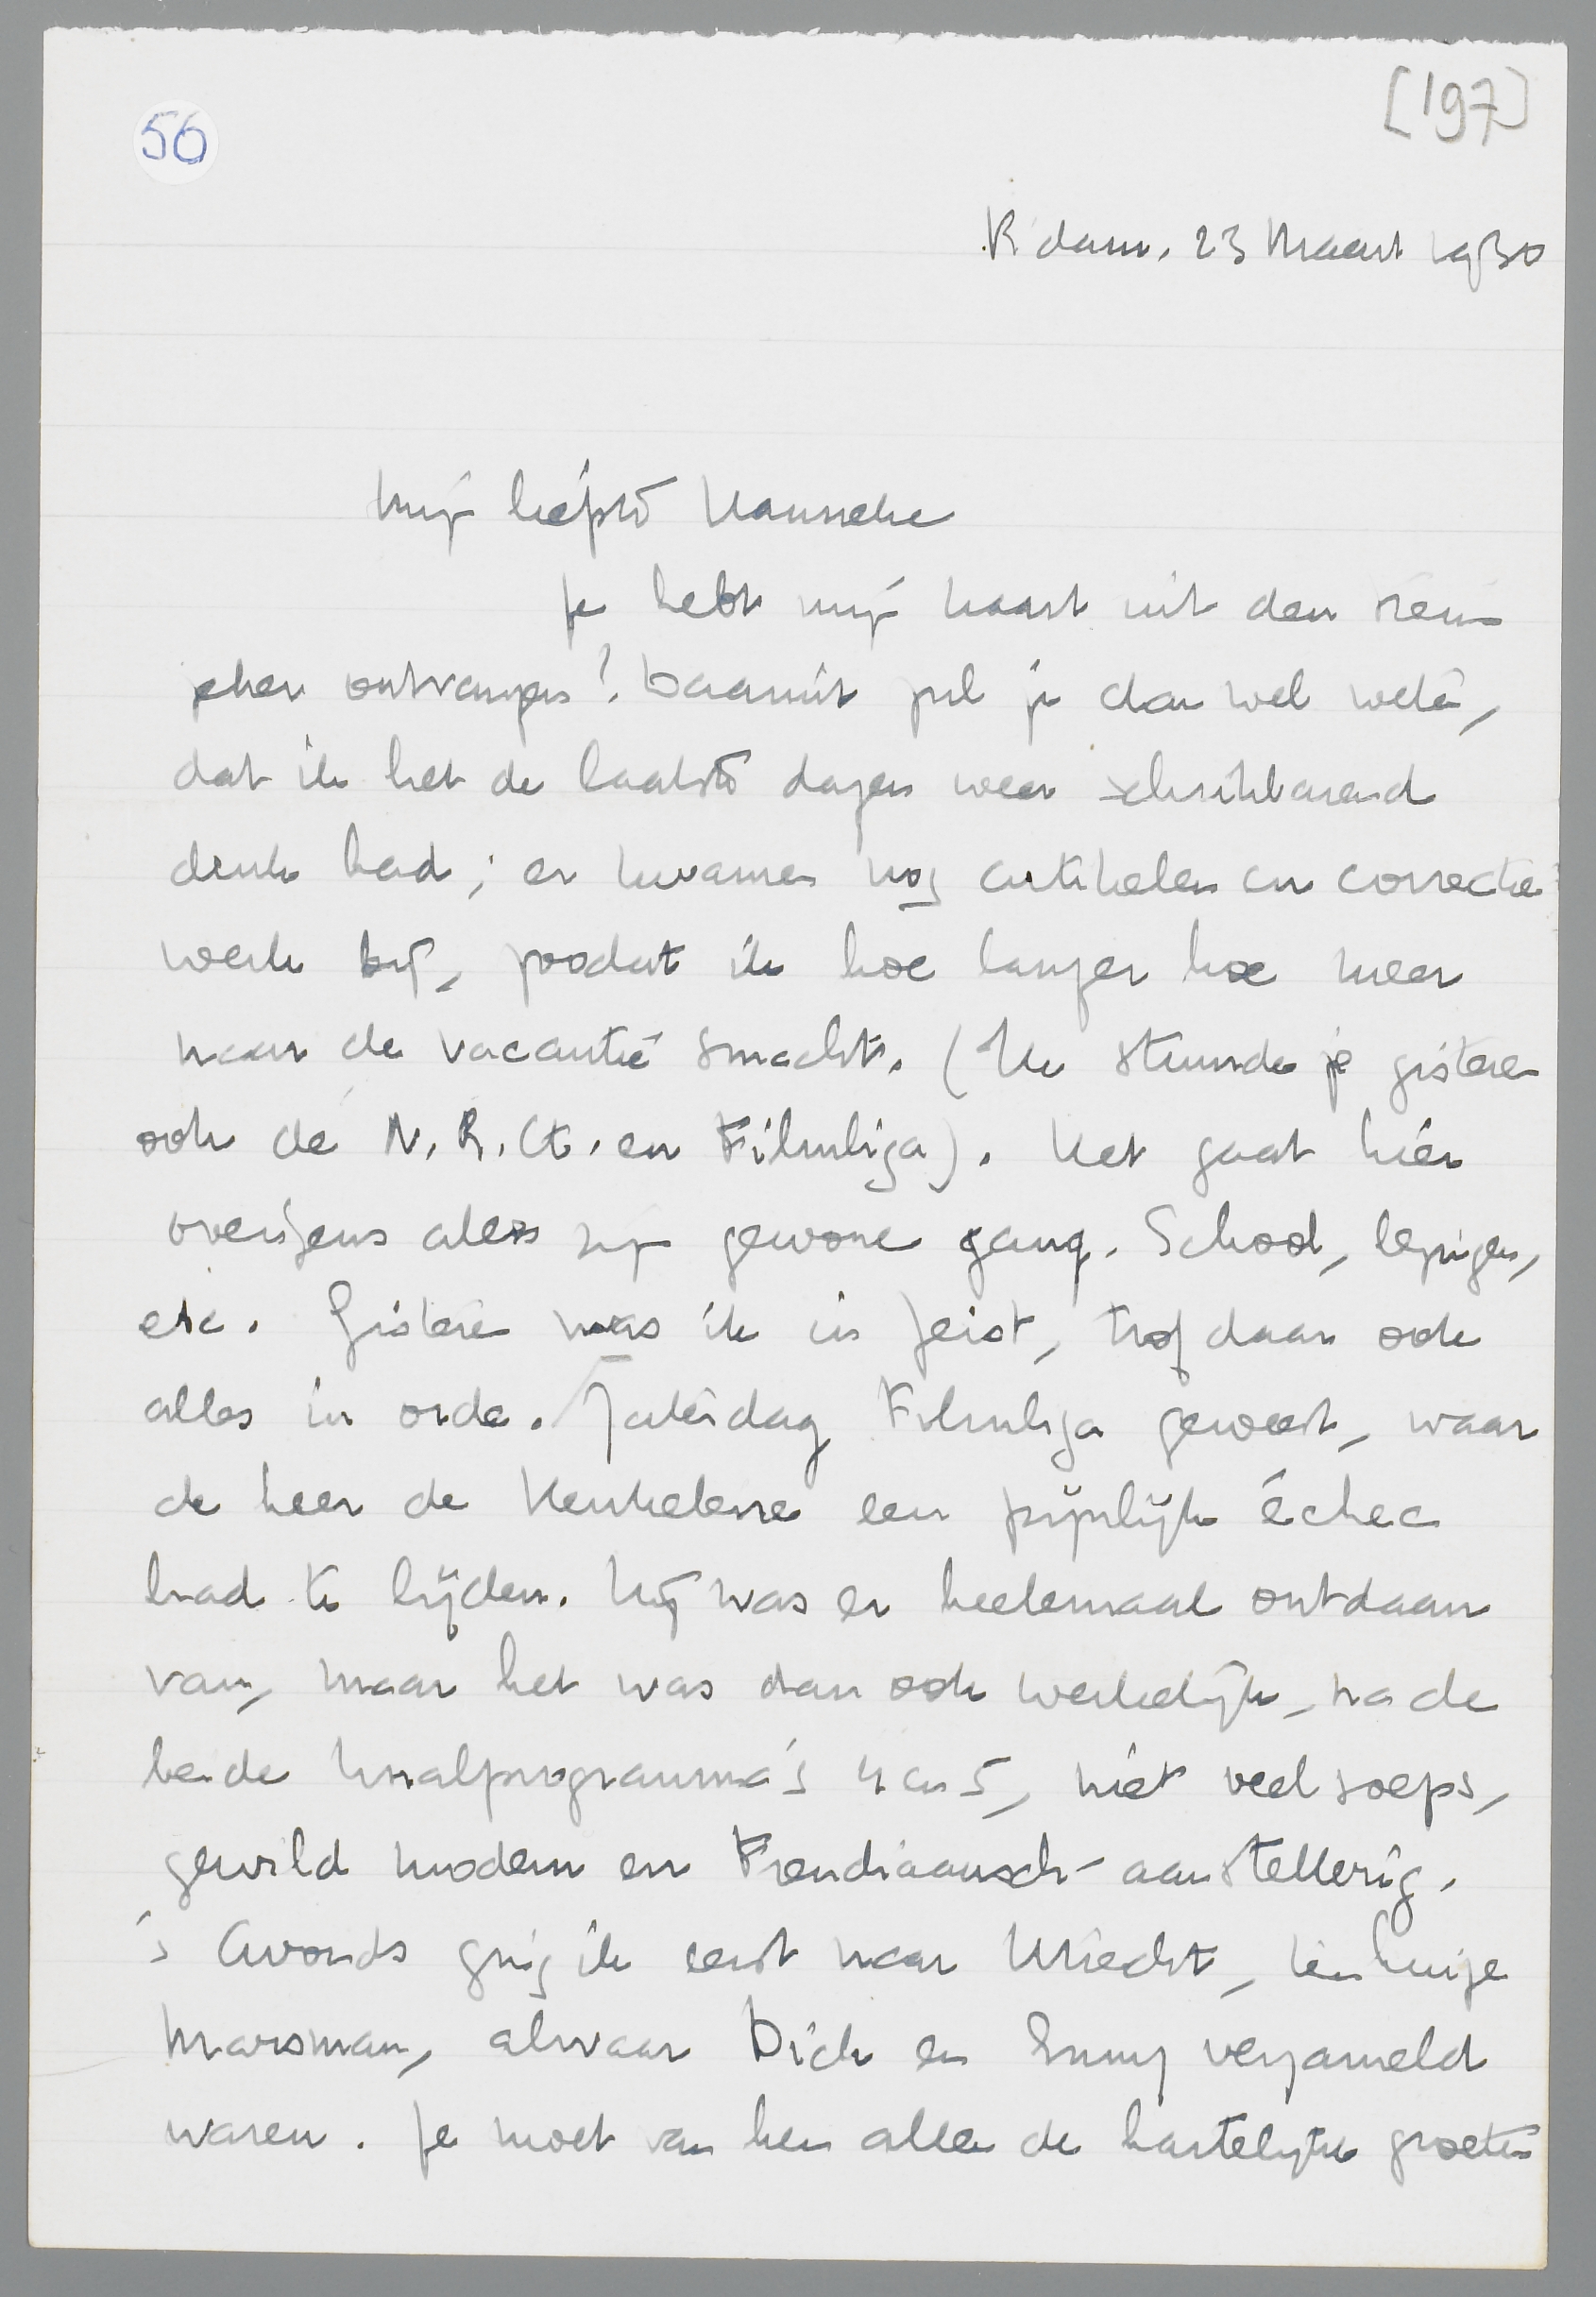 56
[197]
R'dam, 23 Maart 1930
Mijn liefste Hanneke
Je hebt mijn kaart uit den trein
zeker ontvangen? Daaruit zul je dan wel weten,
dat ik het de laatste dagen weer schrikbarend
druk had; er kwamen nog artikelen en correctie
werk bij, zoodat ik hoe langer hoe meer
naar de vacantie smacht. (Ik stuurde je gisteren
ook de N.R.Ct. en Filmliga). Het gaat hier
overigens alles zijn gewone gang. School, lezingen,
etc. Gisteren was ik in Zeist, trof daar ook
alles in orde. Zaterdag Filmliga geweest, waar
de heer de Keukeleire een pijnlijk échec
had te lijden. Hij was er heelemaal ontdaan
van, maar het was dan ook werkelijk, na de
beide knalprogramma's 4 en 5, niet veel soeps,
gewild modern en Freudiaansch-aanstellerig.
's Avonds ging ik eerst naar Utrecht, ten huize
Marsman, alwaar Dick en verzameld
waren. Je moet van hen allen de hartelijke groeten